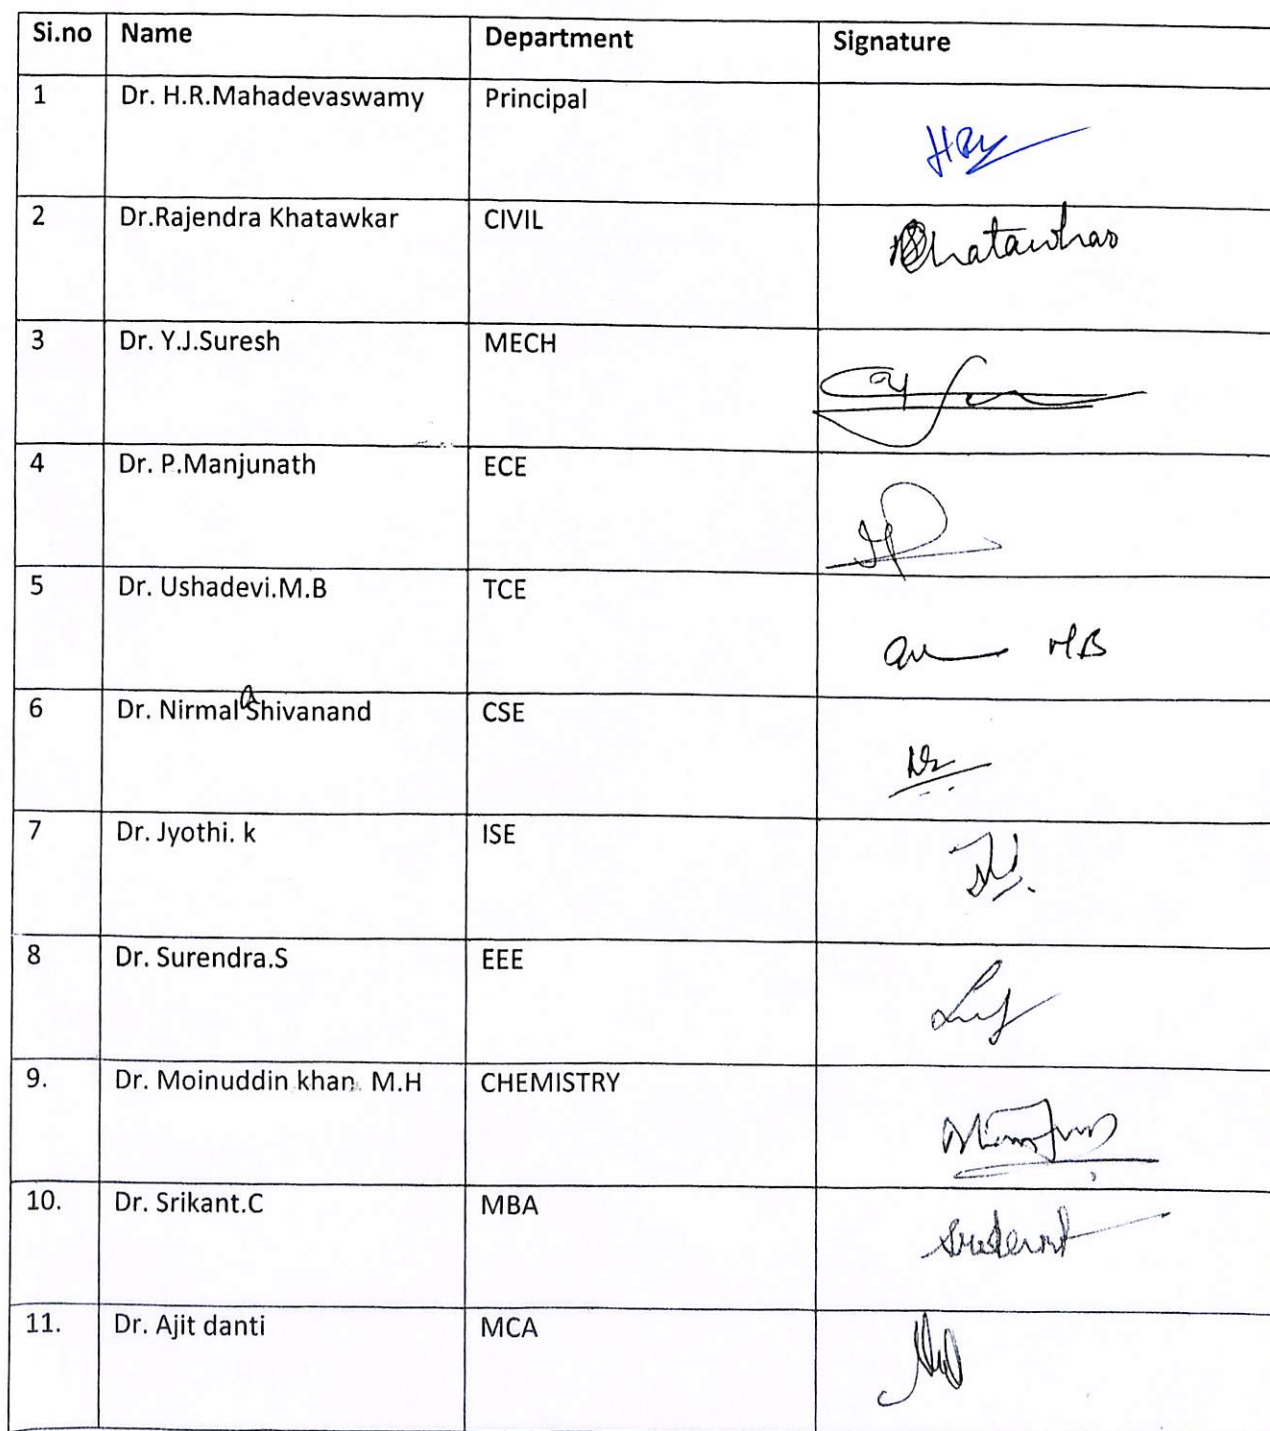 Si.no Name Department Signature
1 Dr. H.R.Mahadevaswamy Principal
2 Dr.Rajendra Khatawkar CIVIL
3 Dr. Y.J.Suresh MECH
4 Dr. P.Manjunath ECE
5 Dr. Ushadevi.M.B TCE
M.B
6 Dr. Nirmala Shivanand CSE
7 Dr. Jyothi. k ISE
8 Dr. Surendra.S EEE
9. Dr. Moinuddin khan. M.H CHEMISTRY
10. Dr. Srikant.C MBA
11. Dr. Ajit danti MCA